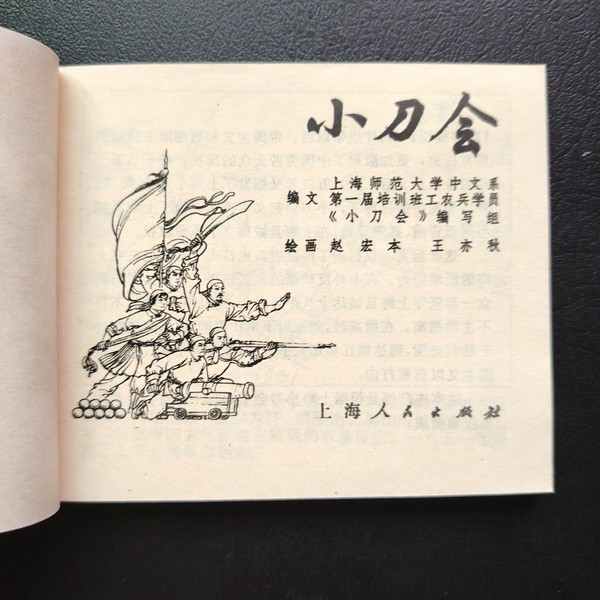 小刀会
上海师范大学中文系
编文 第一届培训班工农兵学员
《小刀会》编写组
绘画 赵宏本 王亦秋
上海人民出版社